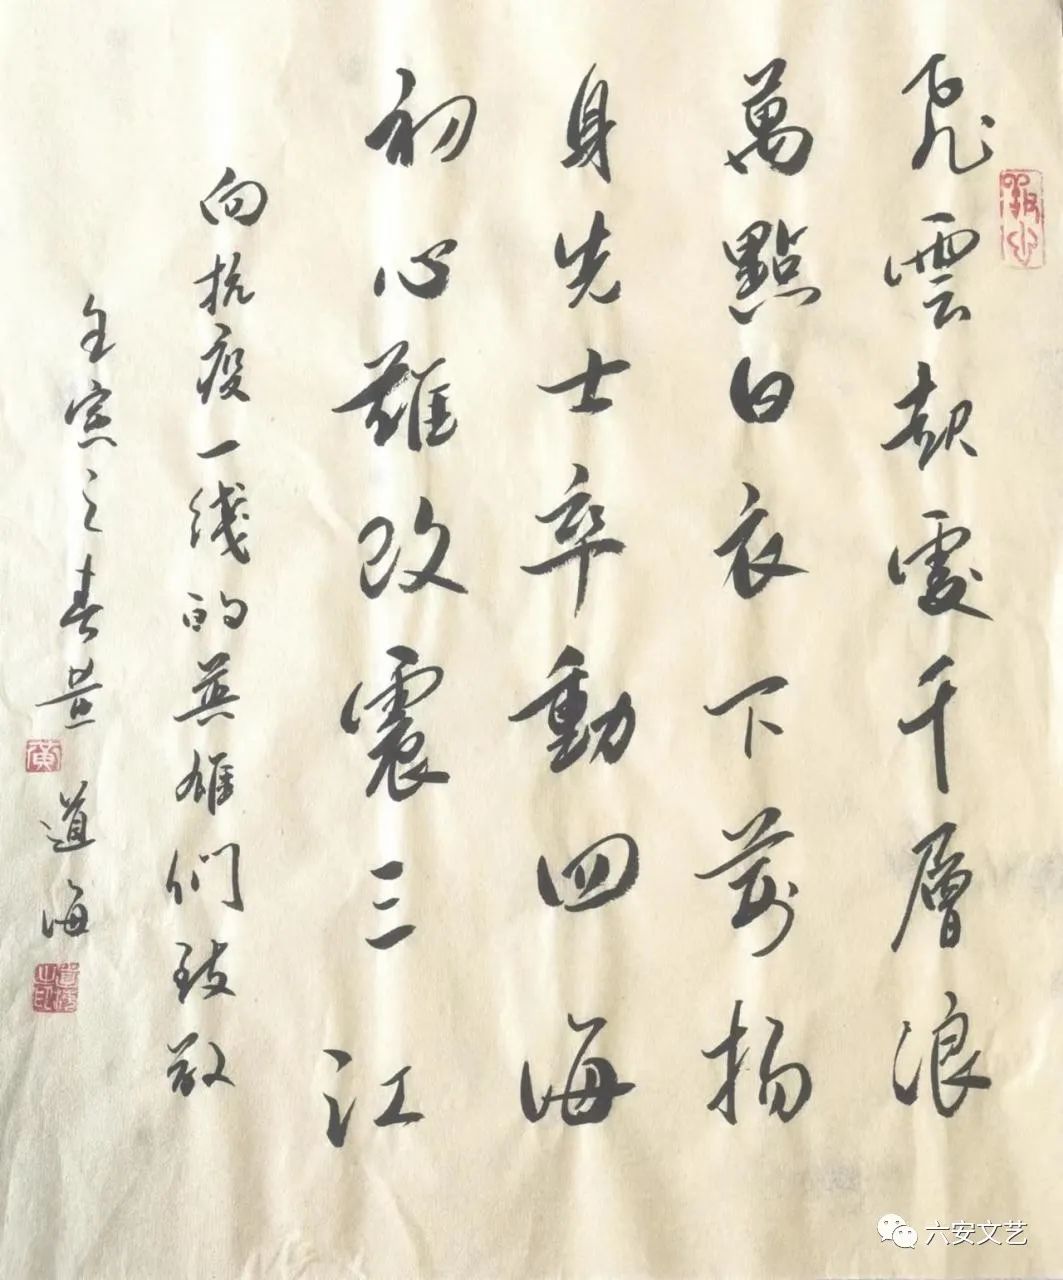 飛雲起處千層浪
萬點白衣下萬揚
身先士卒動四海
初心難改震三江
向抗疫一线的英雄们致敬
之春黄
道海
六安文艺